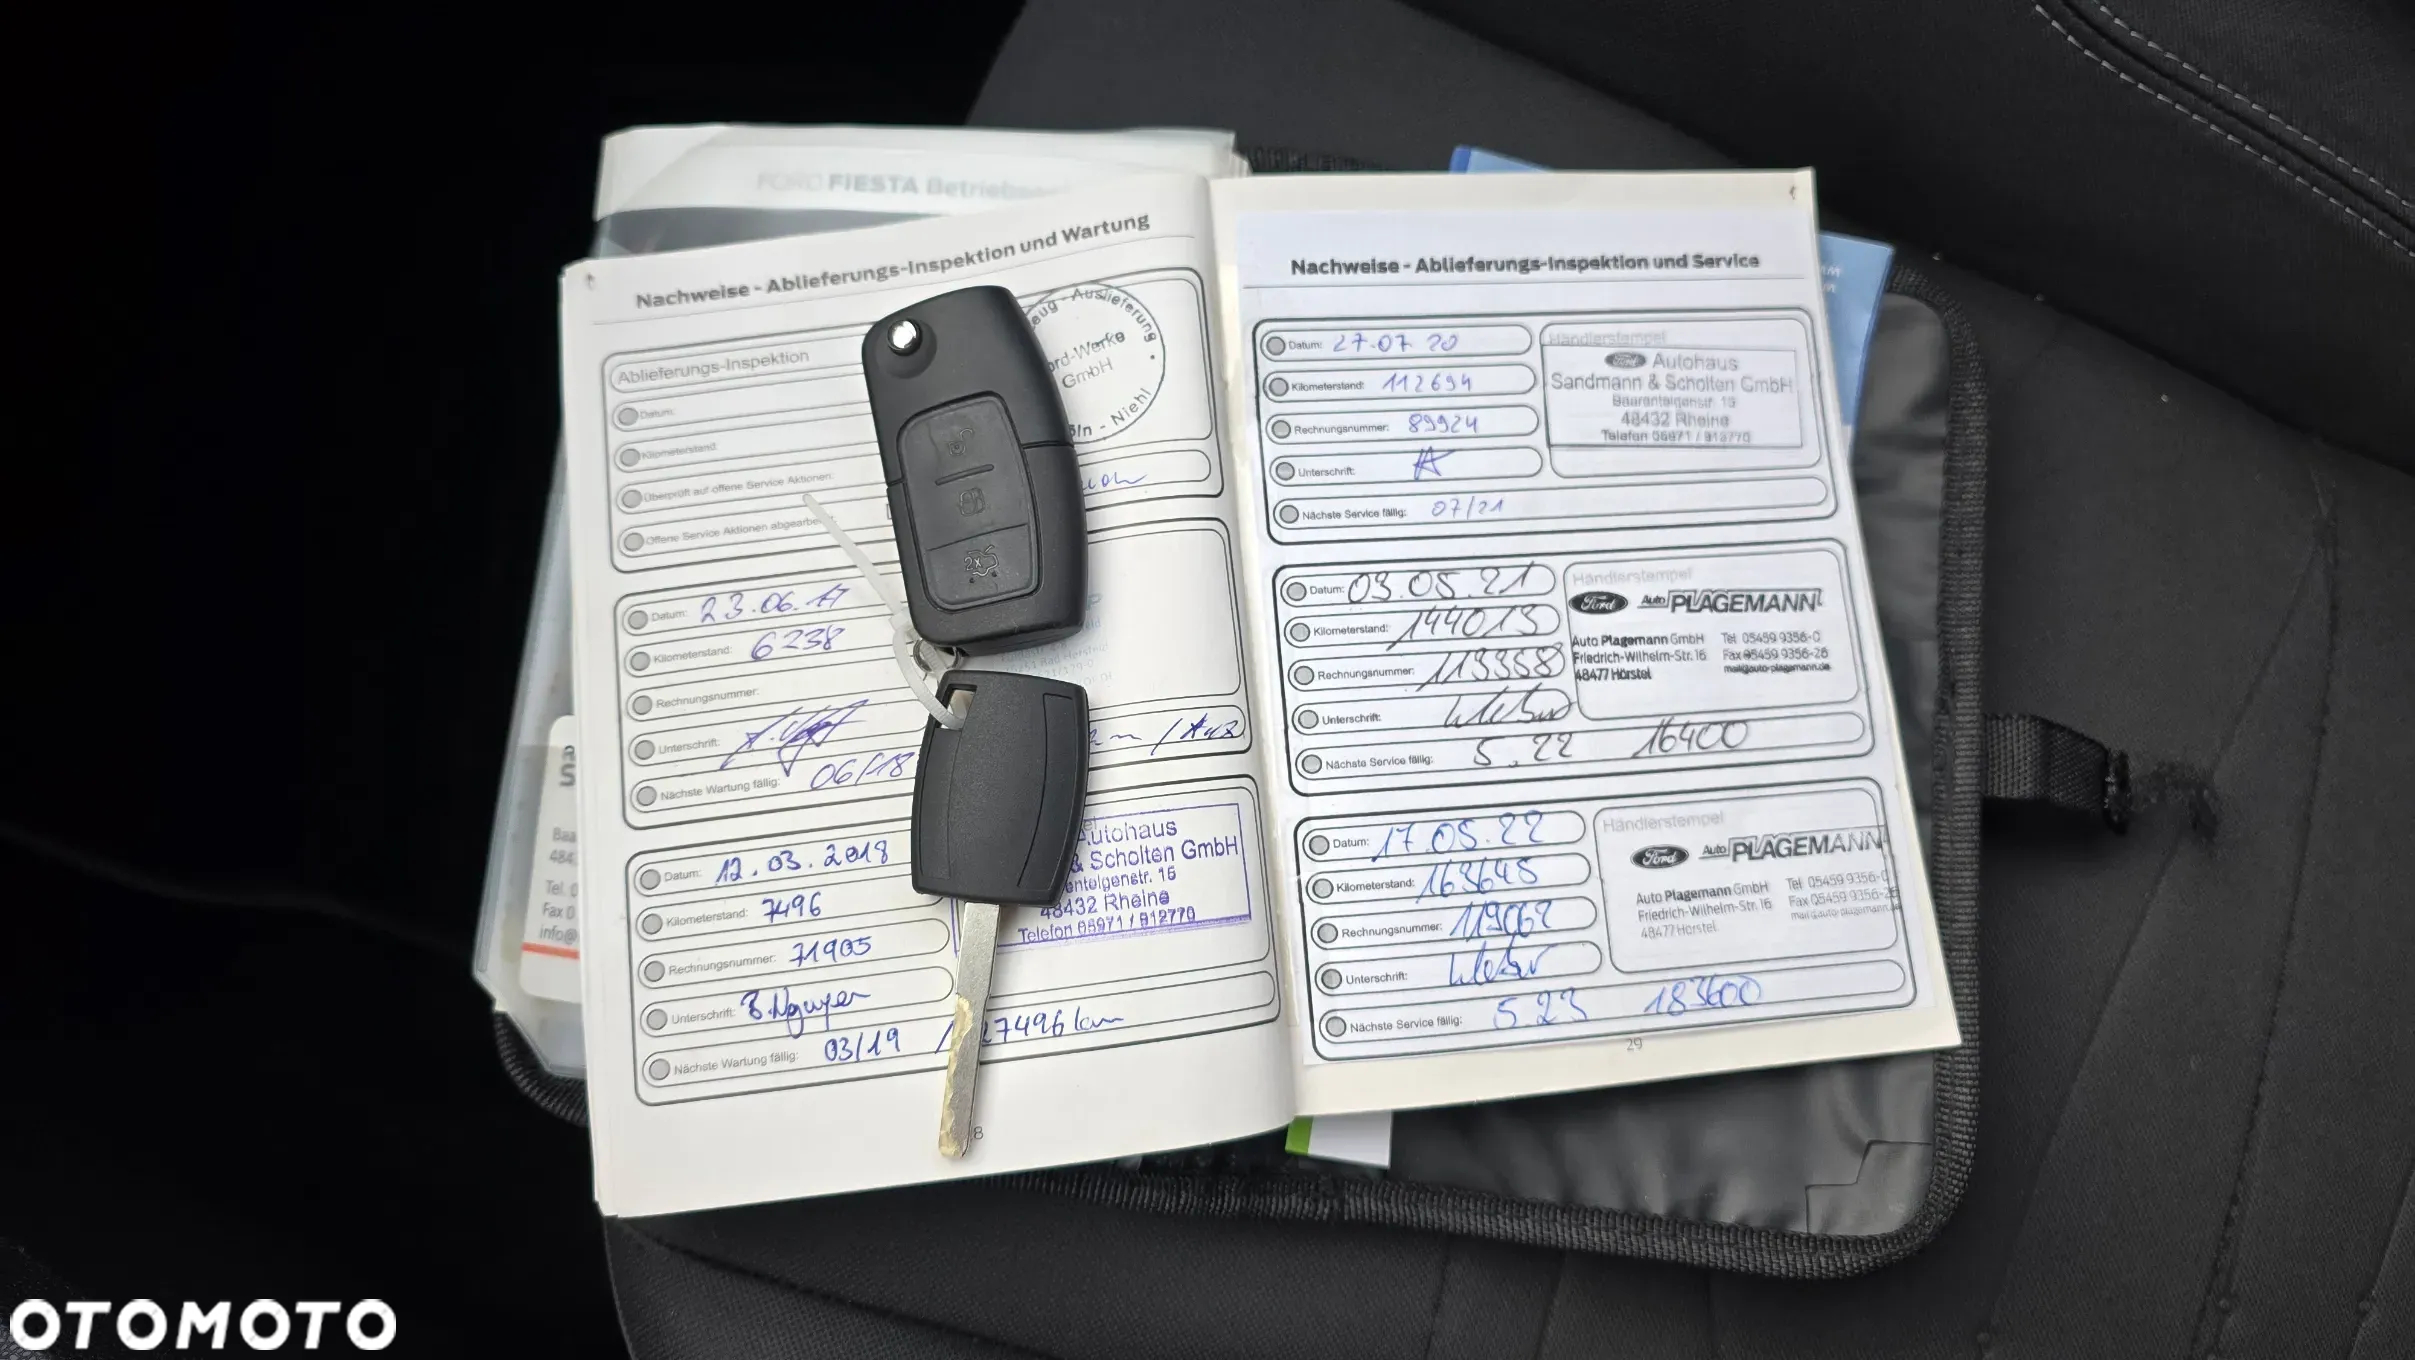 FORD FIESTA
Nachweise - Ablieferungs-Inspektion und Wartung
Ablieferungs-Inspektion
Datum:
Kilometerstand:
Überprüft auf offene Service Aktionen:
Offene Service Aktionen
Auslieferung
GmbH
Niehl
Datum: 23.06.17
Kilometerstand: 6238
Rechnungsnummer:
Unterschrift:
Nächste Wartung fällig: 06/18
Datum: 12.03.2018
Kilometerstand: 7496
Rechnungsnummer: 71905
Unterschrift: B.Nguyen
Nächste Wartung fällig: 03/19 / 27496 km
Autohaus
& Scholten GmbH
48432 Rheine
Telefon 05971 / 912770
Nachweise - Ablieferungs-Inspektion und Service
Datum: 27.07 20
Kilometerstand: 112694
Rechnungsnummer: 89924
Unterschrift:
Nächste Service fällig: 07/21
Händlerstempel
Ford Autohaus
Sandmann & Scholten GmbH
48432 Rheine
Telefon 05971 / 912770
Datum: 03.05.21
Kilometerstand: 144013
Rechnungsnummer: 113358
Unterschrift:
Nächste Service fällig: 5.22 16400
Händlerstempel
Ford Auto PLAGEMANN
Auto Plagemann GmbH Tel 05459 9356-0
Friedrich-Wilhelm-Str. 16 Fax 05459 9356-26
48477 Hörstel mail@auto-plagemann.de
Datum: 17.05.22
Kilometerstand: 163645
Rechnungsnummer: 119062
Unterschrift:
Nächste Service fällig: 5.23 183600
Händlerstempel
Ford Auto PLAGEMANN
Auto Plagemann GmbH Tel 05459 9356-0
Friedrich-Wilhelm-Str. 16 Fax 05459 9356-26
48477 Hörstel mail@auto-plagemann.
29
2x
OTOMOTO